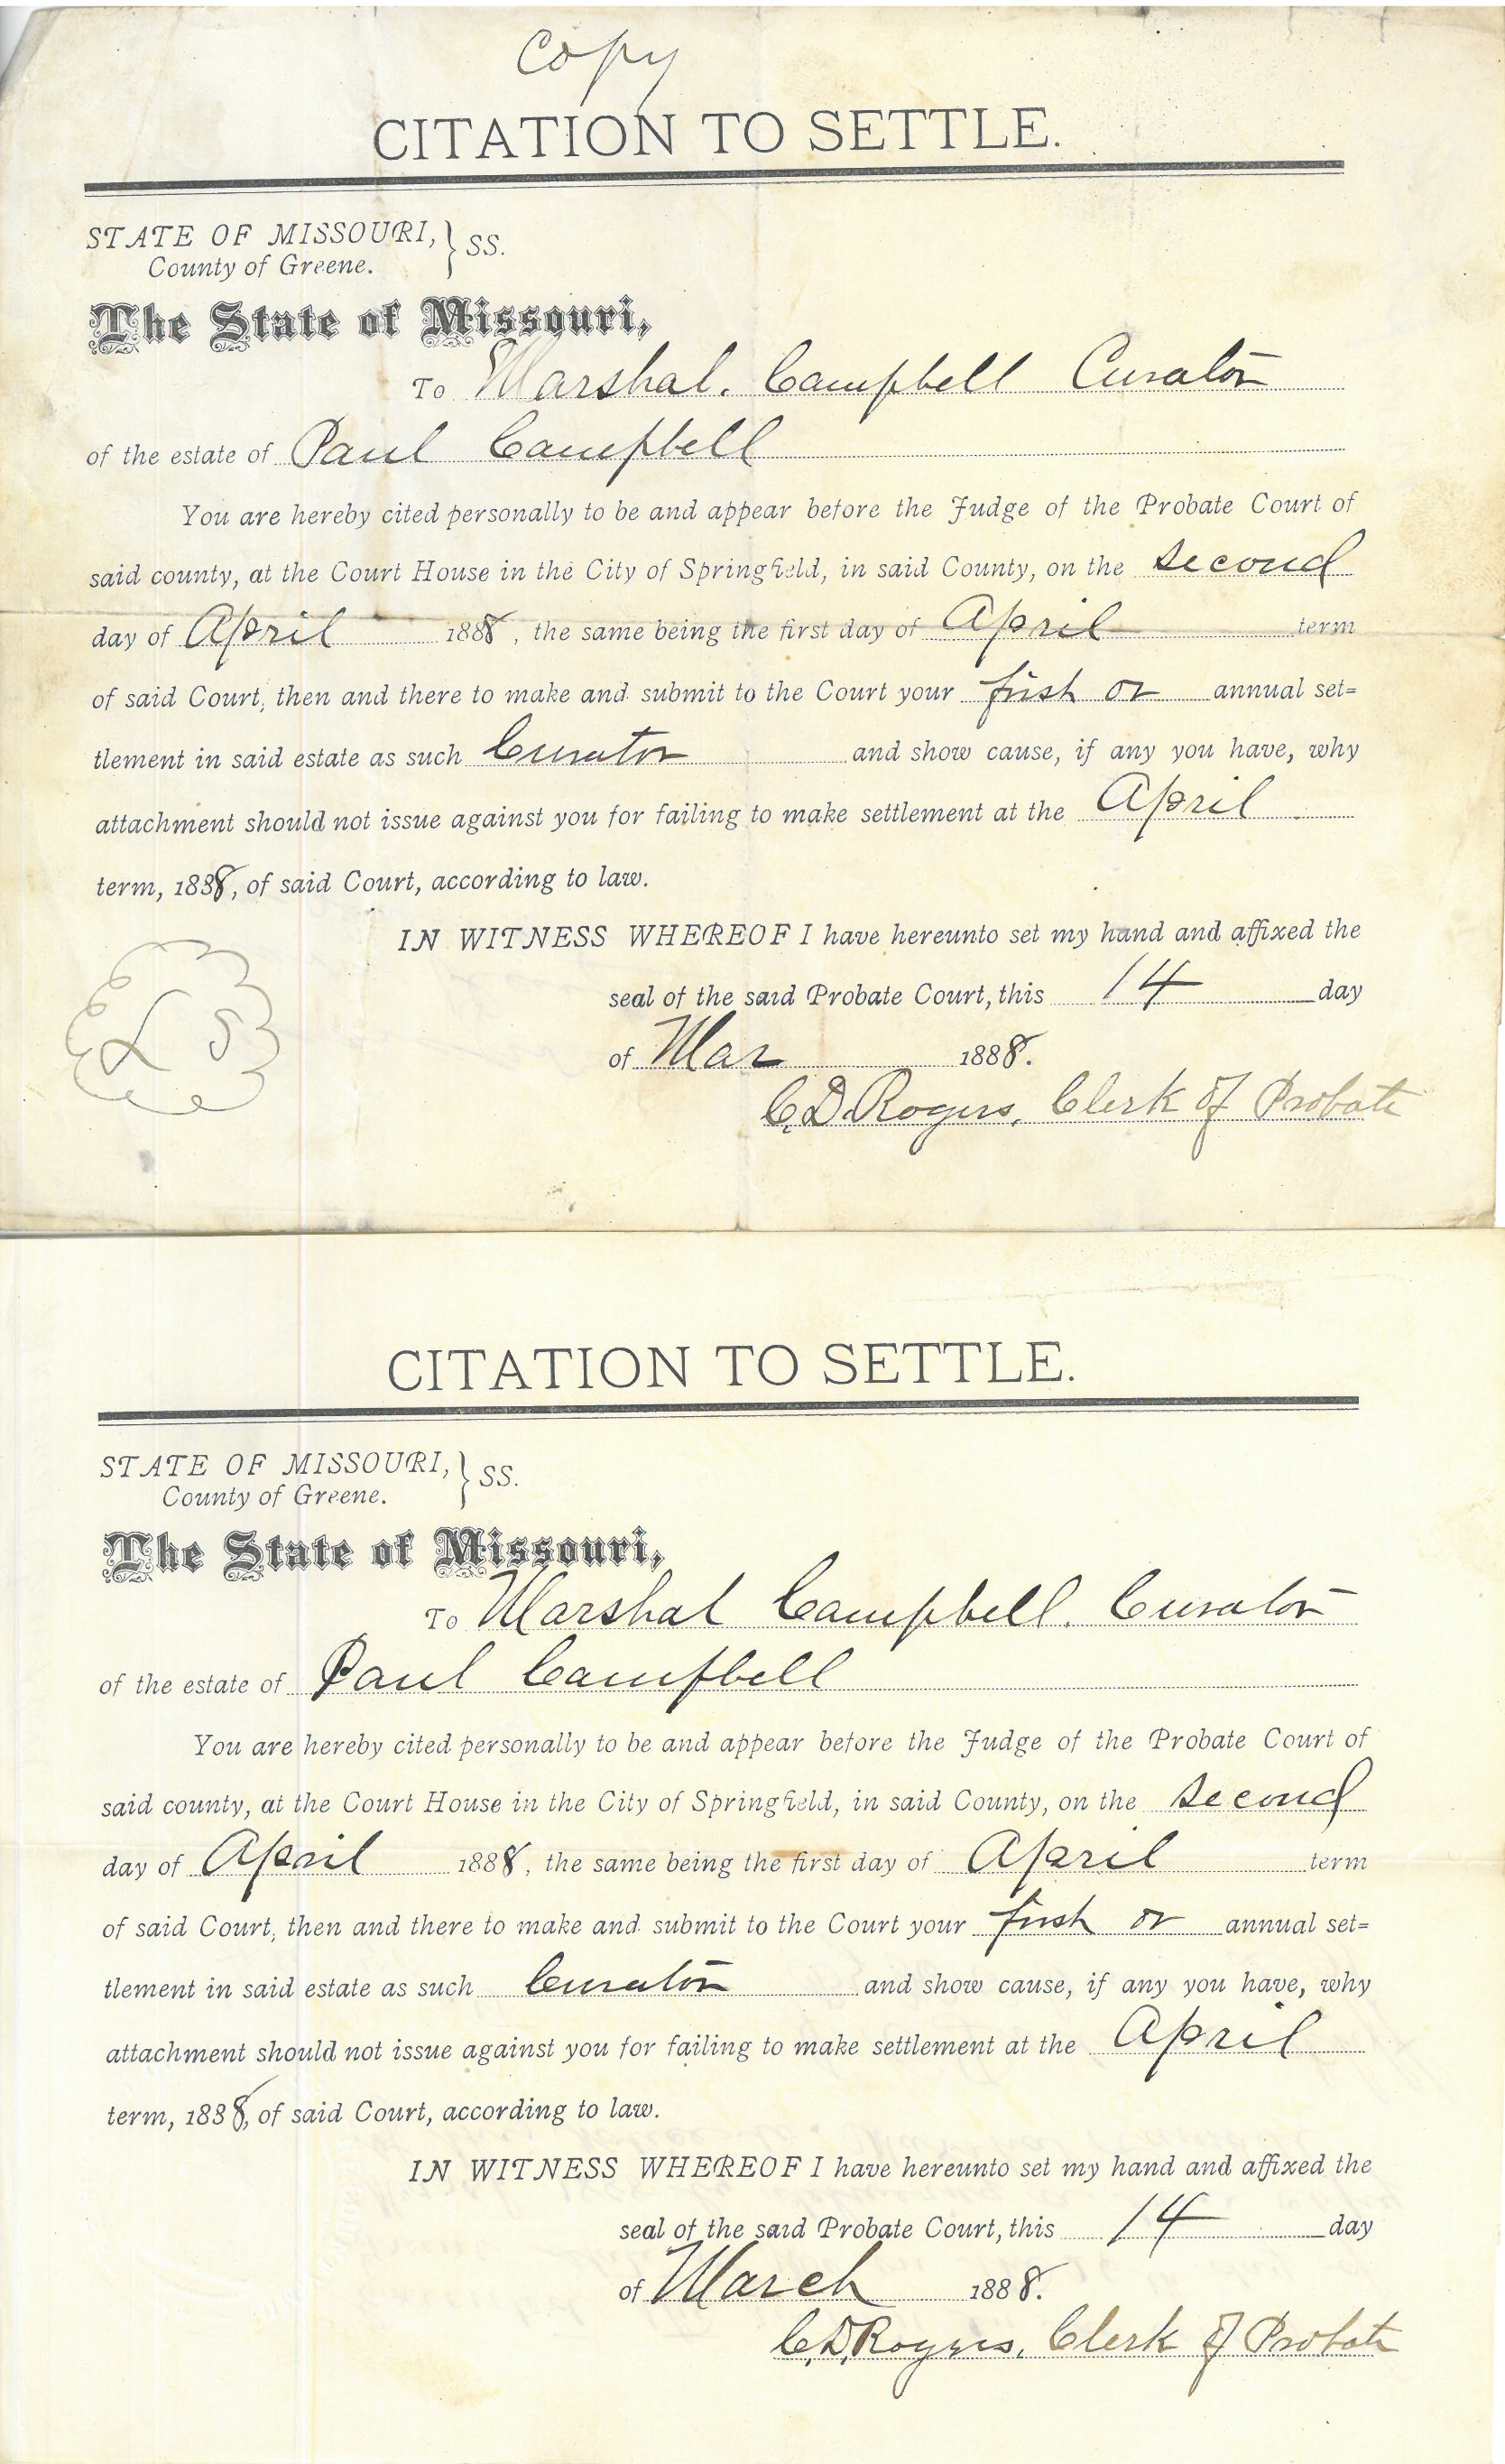 Copy
CITATION TO SETTLE.
STATE OF MISSOURI, } SS.
County of Greene.
The State of Missouri,
To Marshal. Campbell Curator
of the estate of Paul Campbell
You are hereby cited personally to be and appear before the Judge of the Probate Court of
said county, at the Court House in the City of Springfield, in said County, on the second
day of April 1888, the same being the first day of April term
of said Court, then and there to make and submit to the Court your first or annual set=
tlement in said estate as such Curator and show cause, if any you have, why
attachment should not issue against you for failing to make settlement at the April
term, 1888, of said Court, according to law.
IN WITNESS WHEREOF I have hereunto set my hand and affixed the
seal of the said Probate Court, this 14 day
of Mar 1888.
L S
C. D. Rogers, Clerk of Probate
CITATION TO SETTLE.
STATE OF MISSOURI, } SS.
County of Greene.
The State of Missouri,
To Marshal Campbell. Curator
of the estate of Paul Campbell
You are hereby cited personally to be and appear before the Judge of the Probate Court of
said county, at the Court House in the City of Springfield, in said County, on the second
day of April 1888, the same being the first day of April term
of said Court, then and there to make and submit to the Court your first or annual set=
tlement in said estate as such Curator and show cause, if any you have, why
attachment should not issue against you for failing to make settlement at the April
term, 1888, of said Court, according to law.
IN WITNESS WHEREOF I have hereunto set my hand and affixed the
seal of the said Probate Court, this 14 day
of March 1888.
C. D. Rogers, Clerk of Probate